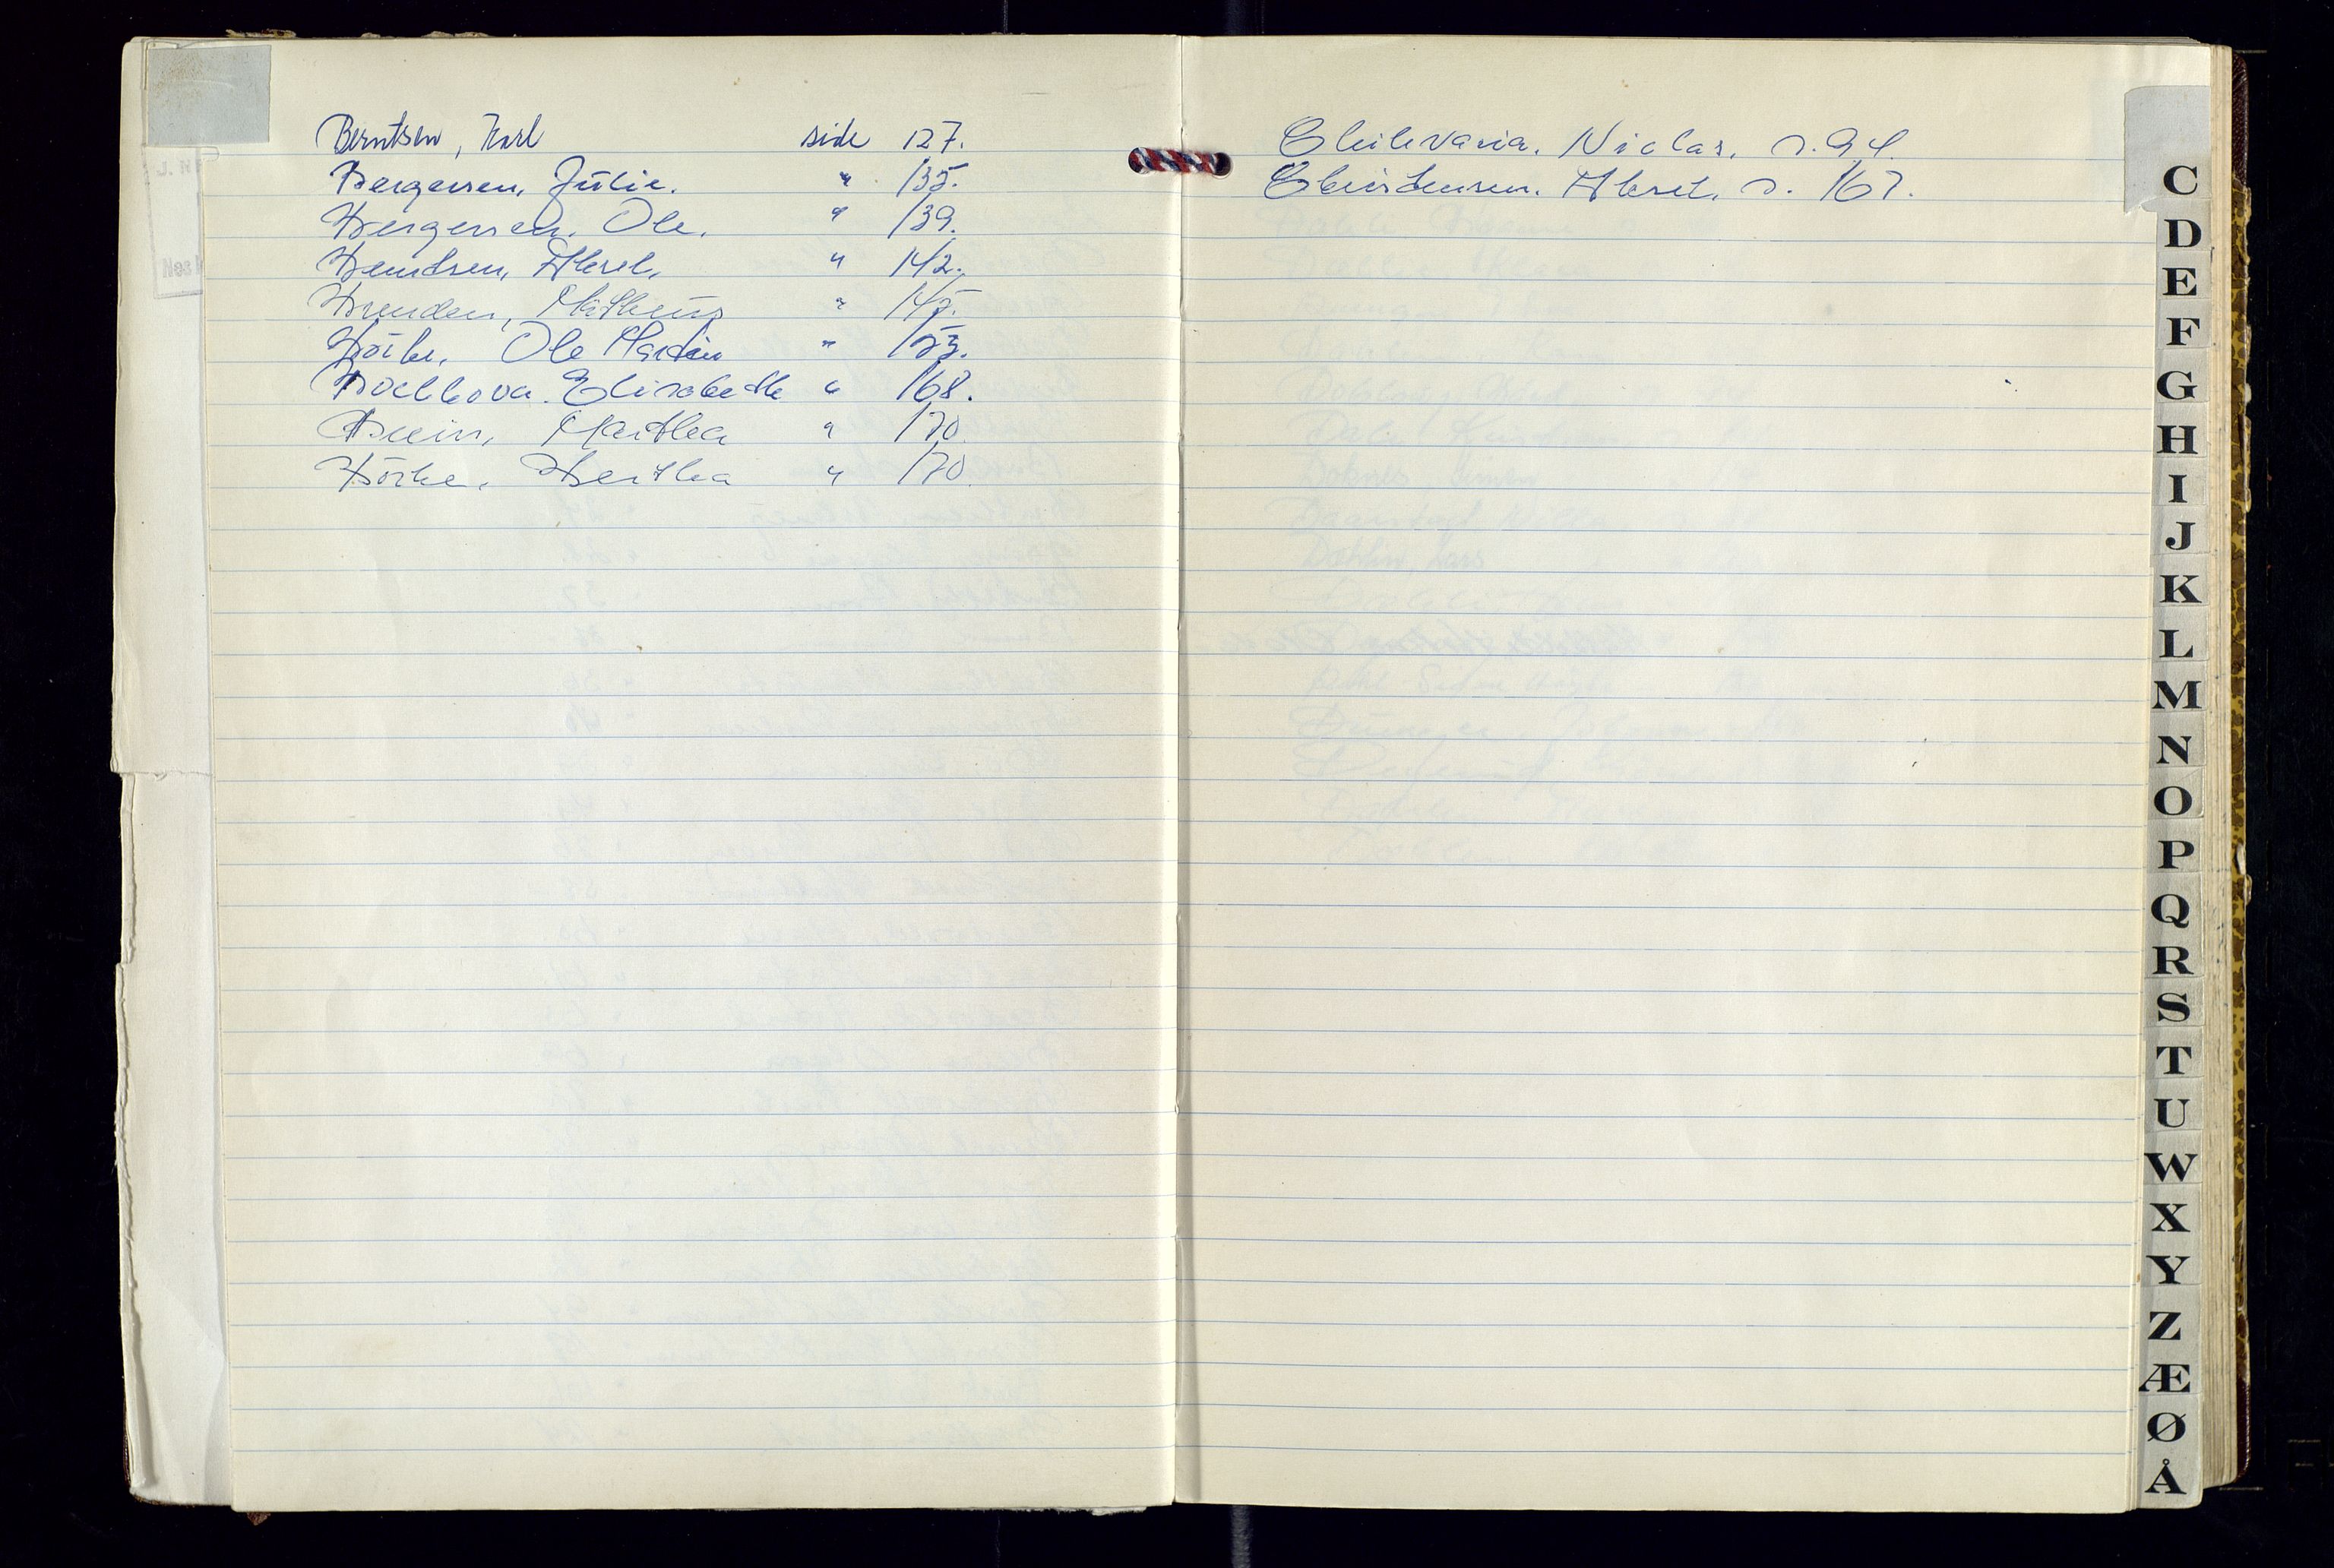 Berntsen, Karl side 127.
Bergersen, Julie. " 135.
Bergersen. Ole. " 139.
Berntsen, Aksel. " 142.
Brenden, Matheus " 145.
Börke, Ole Martin " 153.
Elisabeth " 168.
Martha " 170.
Börke. Bertha " 170.
Niclas. s. 94.
Christensen. Aksel. s. 167.
C
D
E
F
G
H
I
J
K
L
M
N
O
P
Q
R
S
T
U
W
X
Y
Z
Æ
Ø
Å